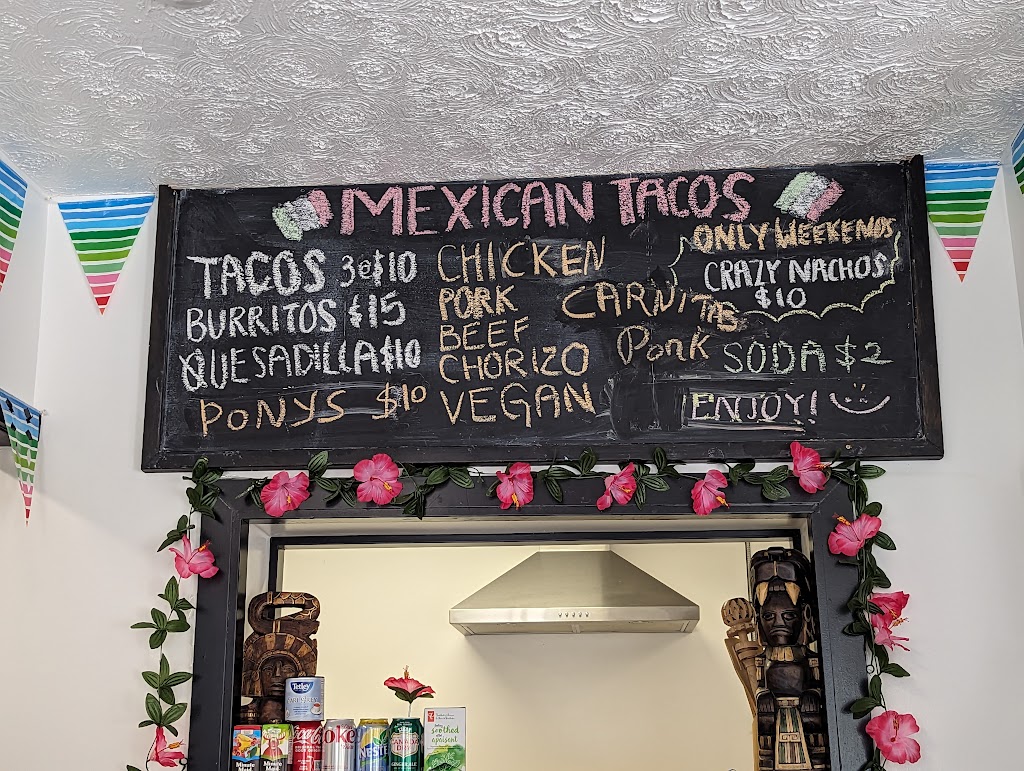 MEXICAN TACOS
TACOS 3@$10
BURRITOS $15
QUESADILLA $10
PONYS $10
CHICKEN
PORK
BEEF
CHORIZO
VEGAN
CARNITAS
Pork
ONLY WEEKENDS
CRAZY NACHOS
$10
SODA $2
ENJOY!
Tetley
Minute
Minute
Coca-Cola
Coke
NESTEA
GINGER ALE
soothed